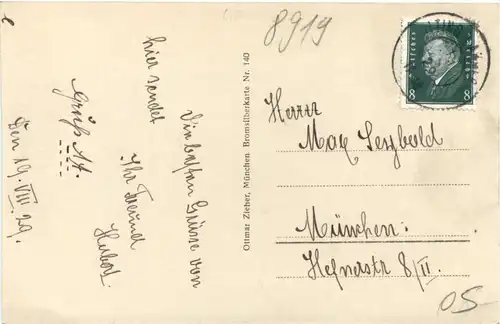 Die besten Grüsse von
hier sendet
Ihr Freund
Hubert
Gruß A.
Den 19. VIII. 29.
Ottmar Zieher, München. Bromsilberkarte Nr. 140
8919
Deutsches Reich
8 8
Herrn
Max Seybold
München.
Hefnerstr 8/II.
OS